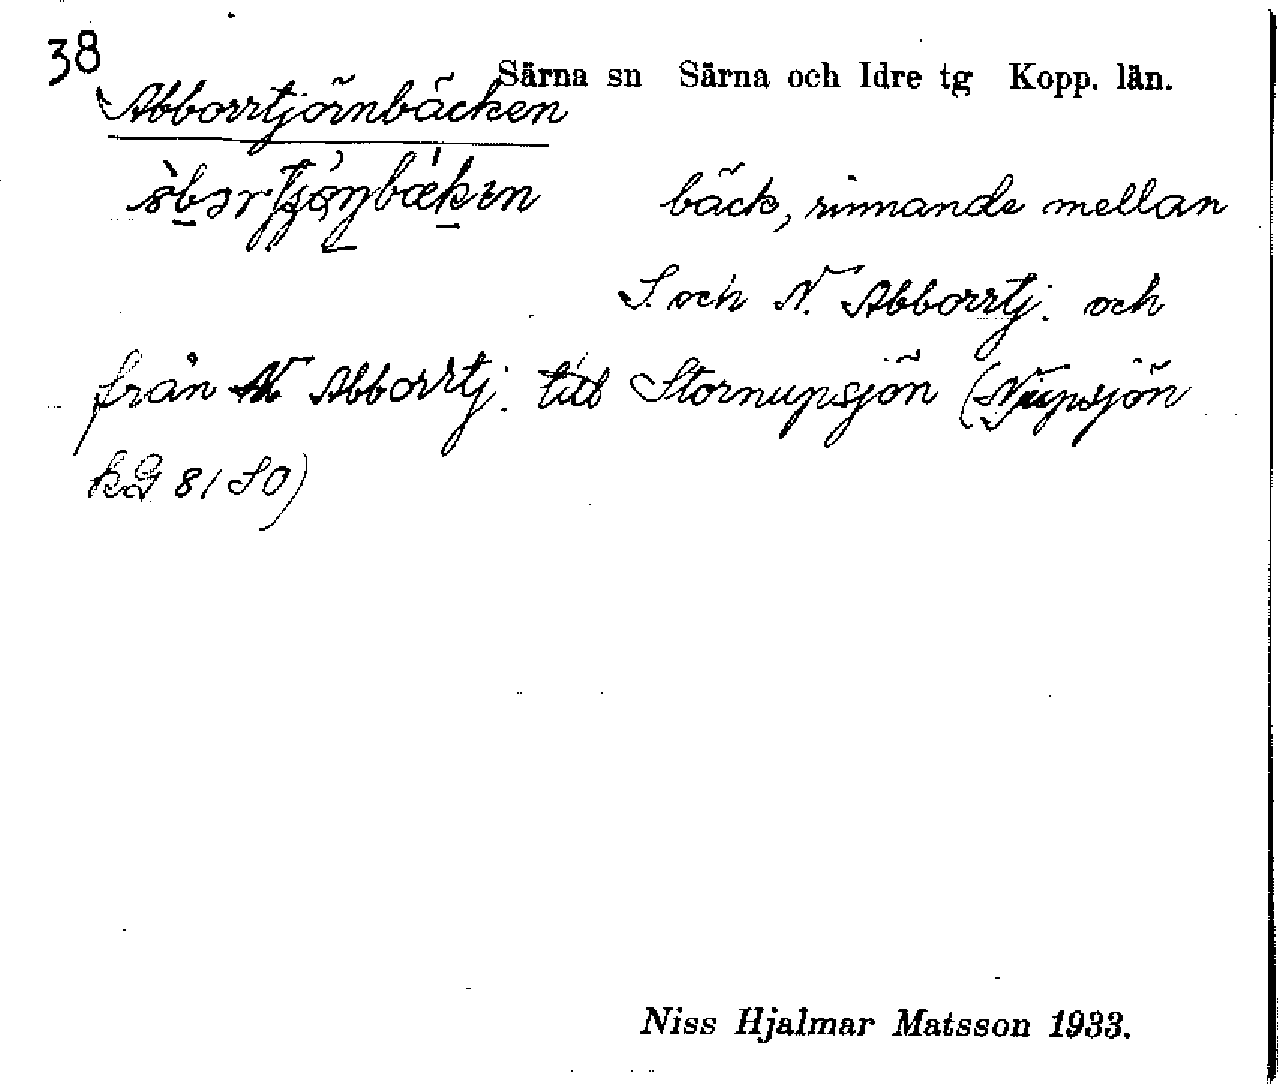 38
Särna sn Särna och Idre tg Kopp. län.
Abborrtjörnbäcken
bäck, rinnande mellan
S. och N. Abborrtj. och
från N Abborrtj. till Stornupsjön (Njupsjön
kG 81 SO)
Niss Hjalmar Matsson 1933.